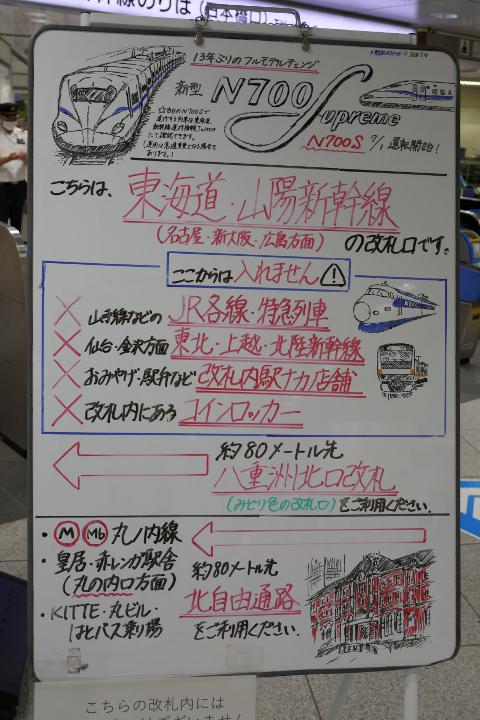 新幹線のりば (日本橋口)
13年ぶりのフルモデルチェンジ
新型 N700 Supreme
N700S 7/1 運転開始!
こちらは、
東海道・山陽新幹線
(名古屋・新大阪・広島方面) の改札口です。
ここからは入れません
山手線などの JR各線・特急列車
仙台・金沢方面 東北・上越・北陸新幹線
おみやげ・駅弁など 改札内駅ナカ店舗
改札内にある コインロッカー
約80メートル先
八重洲北口改札
(みどり色の改札口)をご利用ください。
・M Mb 丸ノ内線
・皇居・赤レンガ駅舎
(丸の内口方面)
・KITTE・丸ビル・
はとバス乗り場
約80メートル先
北自由通路
をご利用ください。
こちらの改札内には